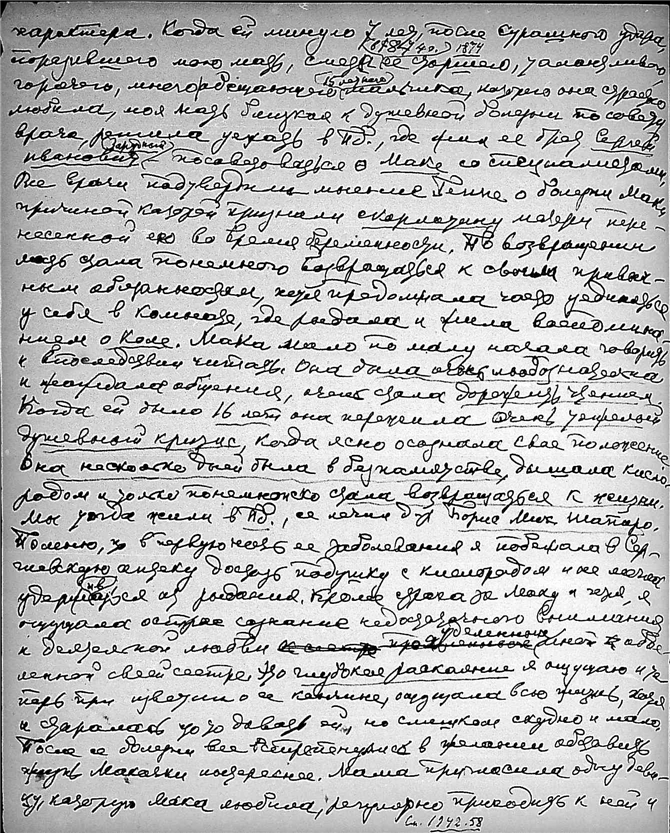 характера. Когда ей минуло 7 лет, после страшного удара,
1874
поразившего мою мать, смерти ее старшего, талантливого
16 летнего
горячего, многообещающего мальчика, которого она страстно
любила, моя мать близкая к душевной болезни по совету
врача, решила уехать в ПБ., где жил ее брат Сергей
Зарудный
Иванович посоветоваться о Маке со специалистами.
Все врачи подтвердили мнение о болезни Маки,
причиной которой признали скарлатину матери пере-
несенной ею во время беременности. По возвращении
мать стала понемногу возвращаться к своим привыч-
ным обязанностям, хотя продолжала часто уединяться
у себя в комнате, где рыдала и жила воспомина-
нием о Коле. Мака мало по малу начала говорить
и впоследствии читать. Она была очень любознательна
и жаждала общения, очень стала дорожить чтением.
Когда ей было 16 лет она пережила очень тяжелый
душевный кризис, когда ясно осознала свое положение.
Она несколько дней была в беспамятстве, дышала кисло-
родом и только понемножко стала возвращаться к жизни.
Мы тогда жили в ПБ., ее лечил д-р Борис Мих. Шапиро.
Помню, что в первую ночь ее заболевания я побежала в Сер-
гиевскую аптеку достать подушку с кислородом и не могла
удержаться от рыдания. Кроме страха за Маку и горя, я
ощущала острое сознание недостаточного внимания
и деятельной любви к обде-
ленной своей сестре. Это глубокое раскаяние я ощущаю и те-
перь при известии о ее кончине, ощущала всю жизнь, хотя
и старалась что то давать ей, но слишком скудно и мало.
После ее болезни все встрепенулись в желании обставить
жизнь Макочки интереснее. Мама пригласила одну деви-
цу, которую Мака любила, регулярно приходить к ней и
1942.58